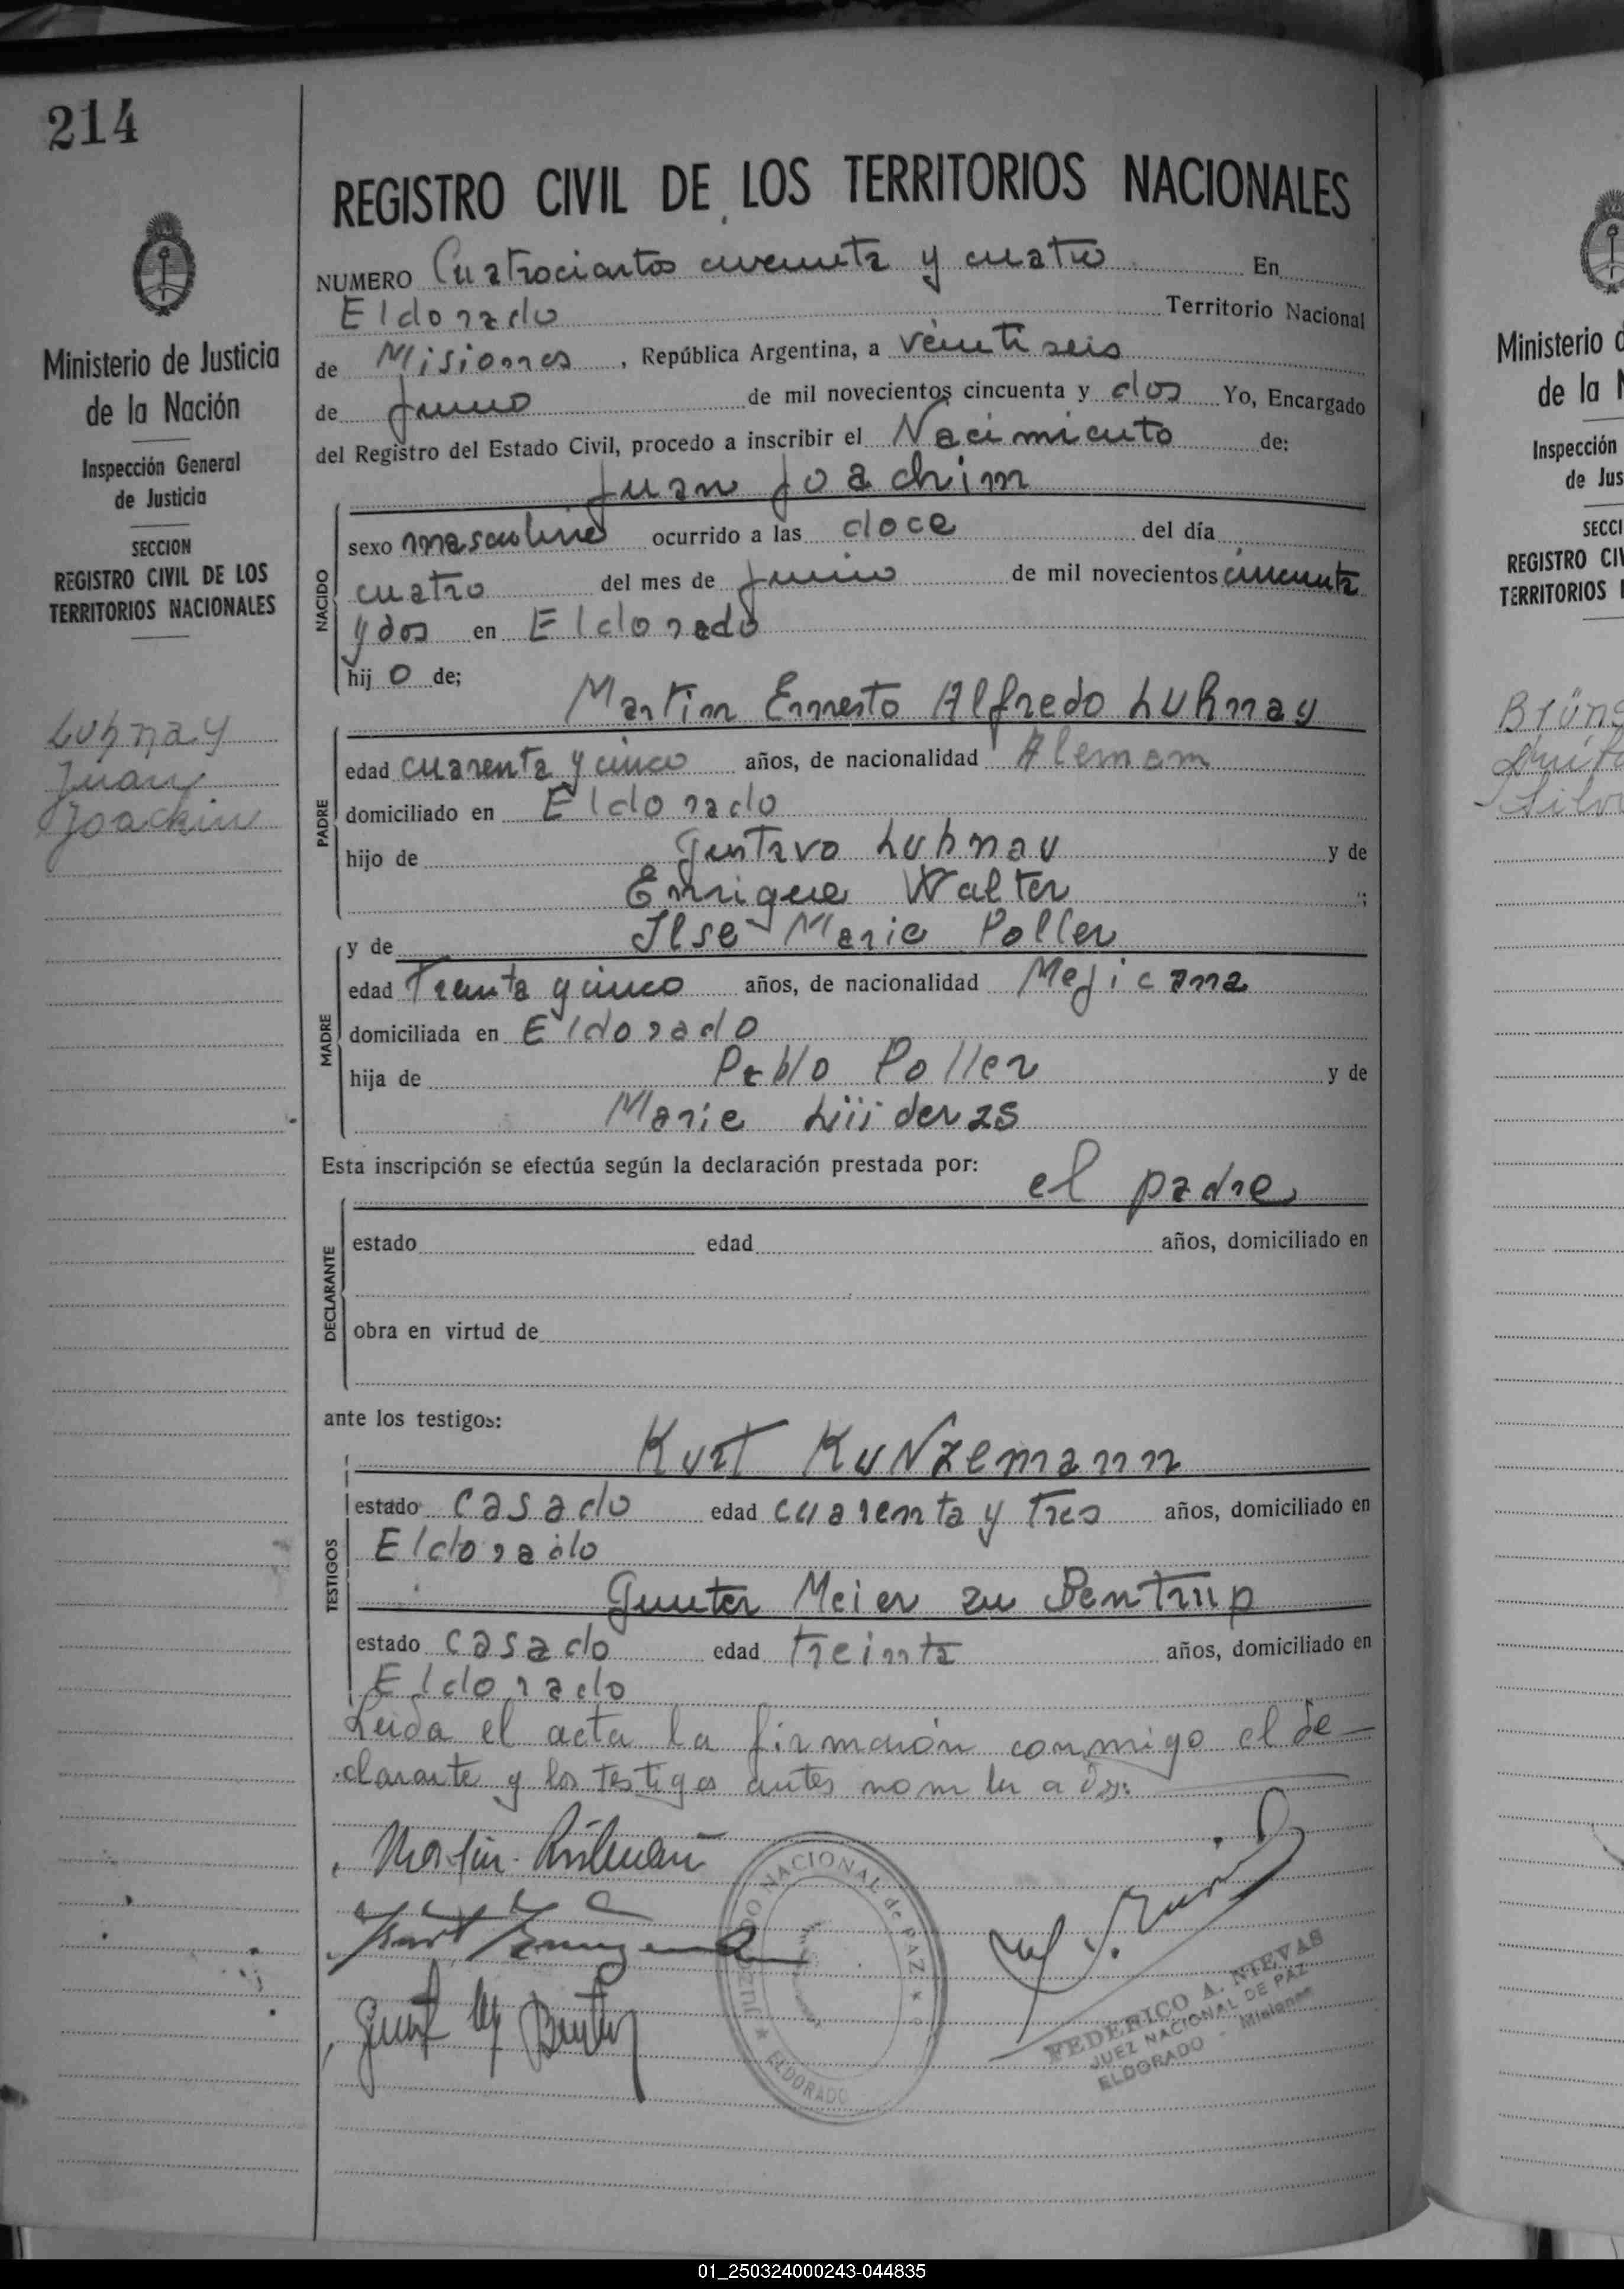 214
REGISTRO CIVIL DE LOS TERRITORIOS NACIONALES
NUMERO Cuatrocientos cincuenta y cuatro En
Eldorado Territorio Nacional
de Misiones, República Argentina, a veinti seis
de Junio de mil novecientos cincuenta y dos Yo, Encargado
del Registro del Estado Civil, procedo a inscribir el Nacimiento de:
Juan Joachim
NACIDO
sexo masculino ocurrido a las doce del día
cuatro del mes de Junio de mil novecientos cincuenta
y dos en Eldorado
hijo de;
Martin Ernesto Alfredo Luhnay
PADRE
edad cuarenta y cinco años, de nacionalidad Alemam
domiciliado en Eldorado
hijo de Gustavo Luhnau y de
Enrique Walter ;
y de Ilse Marie Poller
MADRE
edad Treinta y cinco años, de nacionalidad Mejicana
domiciliada en Eldorado
hija de Pablo Poller y de
Marie Lüders
Esta inscripción se efectúa según la declaración prestada por:
el padre
DECLARANTE
estado edad años, domiciliado en
obra en virtud de
ante los testigos:
Kurt Kunzemann
TESTIGOS
estado casado edad cuarenta y Tres años, domiciliado en
Eldorado
Gunter Meier zu Bentrup
estado casado edad Treinta años, domiciliado en
Eldorado
Leida el acta la firmarón conmigo el de-
clarante y los testigos antes nombrados:
JUZGADO NACIONAL de PAZ ★ ELDORADO ★
FEDERICO A. NIEVAS
JUEZ NACIONAL DE PAZ
ELDORADO - Misiones
Ministerio de Justicia
de la Nación
Inspección General
de Justicia
SECCION
REGISTRO CIVIL DE LOS
TERRITORIOS NACIONALES
Luhnay
Juan
Joachin
Ministerio d
de la N
Inspección
de Jus
SECCI
REGISTRO CIV
TERRITORIOS
01_250324000243-044835